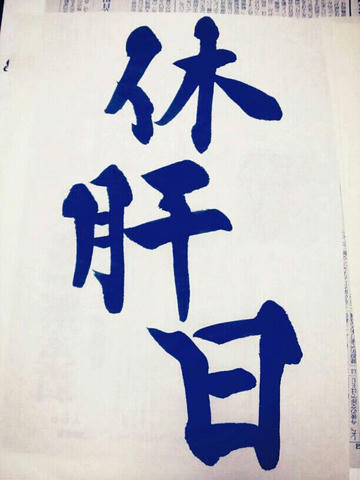 休肝日